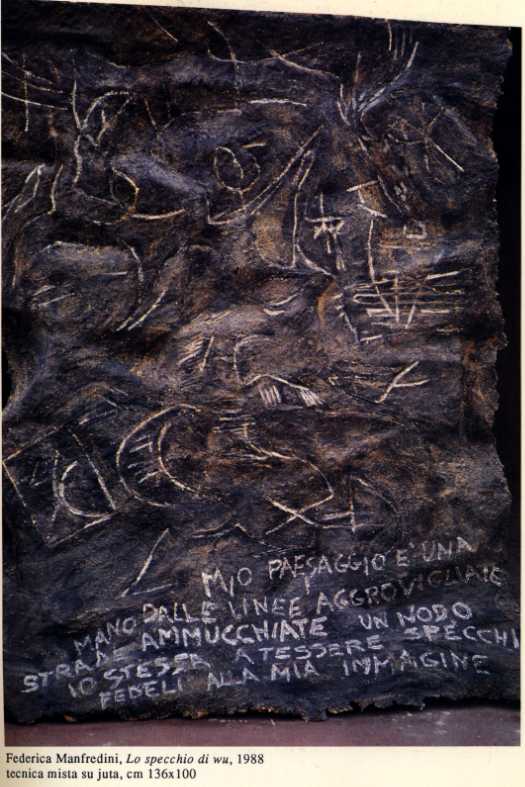 MIO PAESAGGIO E' UNA
MANO DALLE LINEE AGGROVIGLIATE
STRADE AMMUCCHIATE UN NODO
IO STESSA A TESSERE SPECCHI
FEDELI ALLA MIA IMMAGINE
Federica Manfredini, Lo specchio di wu, 1988
tecnica mista su juta, cm 136x100